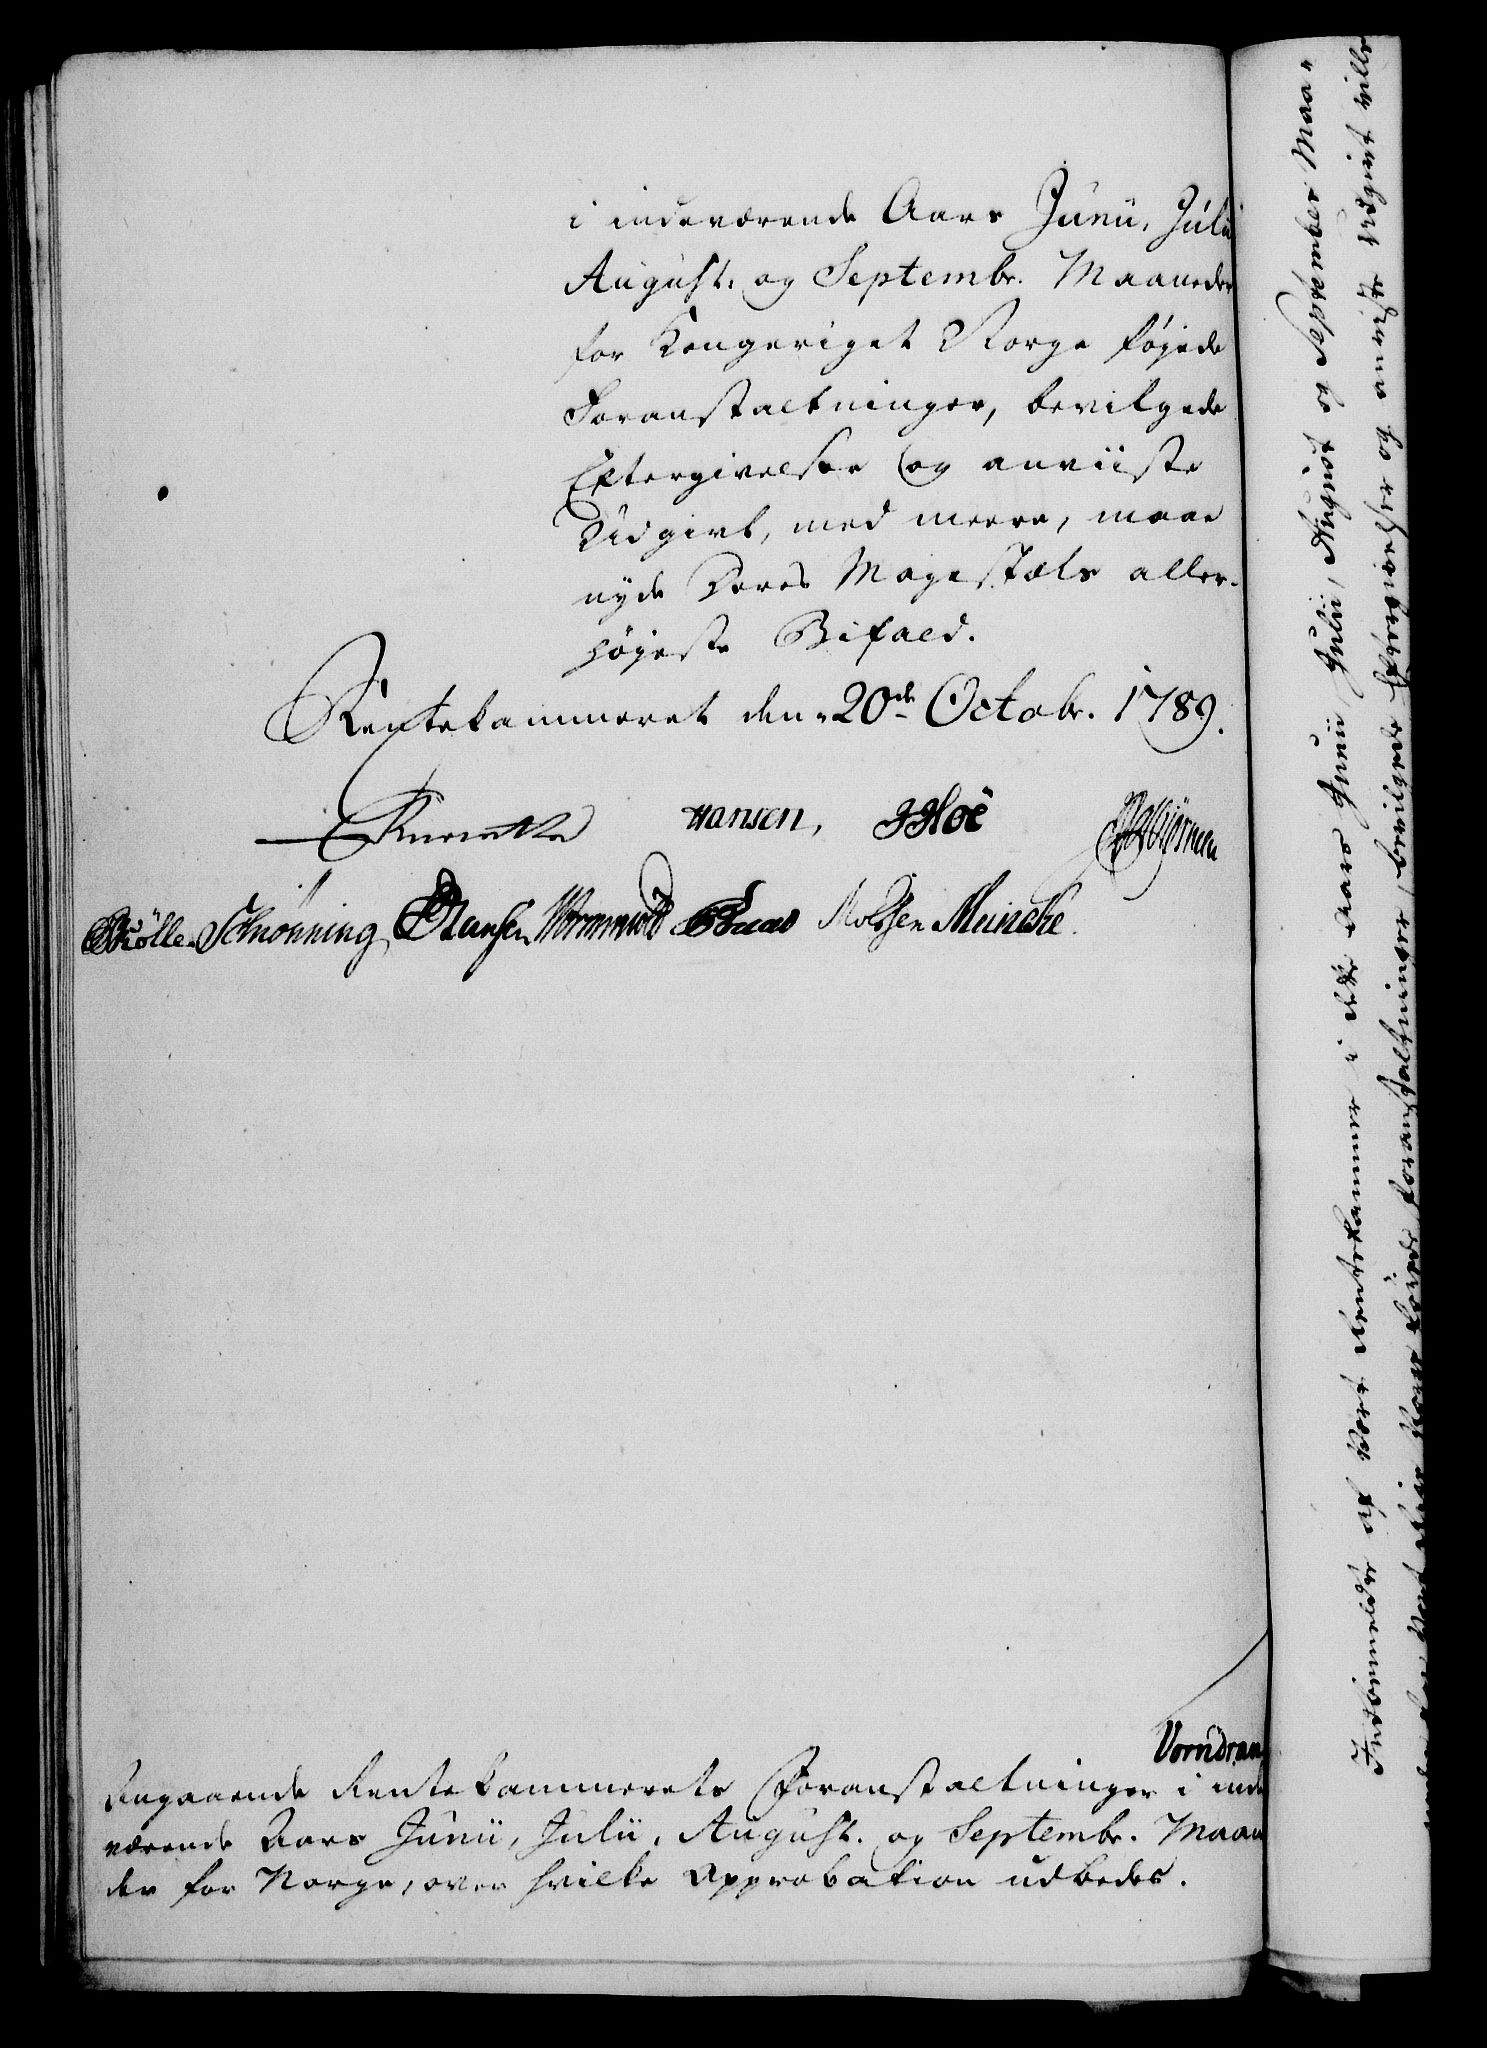 i indeværende Aars Junii, Julii
August. og Septembr. Maaneder
for Kongeriget Norge føjede
Foranstaltninger, bevilgede
Eftergivelser og anviiste
Udgivt, med meere, maae
nyde Deres Majestæts aller-
højeste Bifald.
Rentekammeret den 20de Octobr. 1789.
Hansen, Hoë
Schiönning Hansen Wormwold Molssen Meincke.
Vorndran
Angaaende Rentekammerets Foranstaltninger i inde
værende Aars Junii, Julii, August. og Septembr. Maane
der for Norge, over hvilke Approbation udbedes.
Indkommelder af Vort Rentekammer i dette Aars Junii, Julii, August og September Maa-
Foranstaltninger, bevilgede Eftergivelser og anviiste Udgivt ville